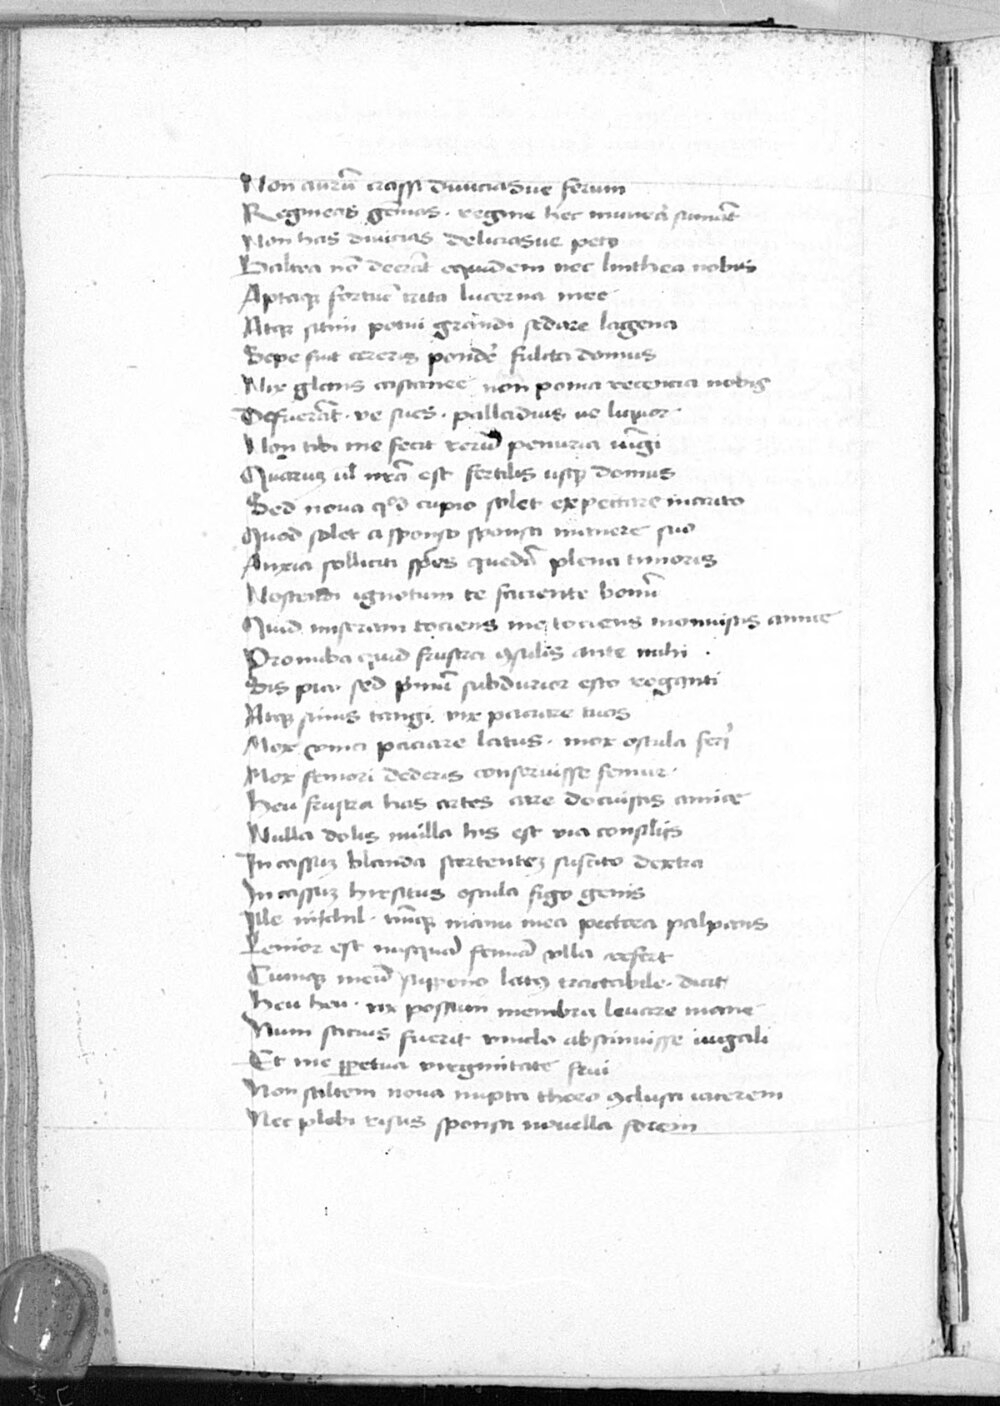 Non aurū crassi diviciasve ferum
Regineas gēmas · regine hec munerā sumāt
Non has divicias deliciasve peto
Baltea nō deerāt equidem nec linthea nobis
Aptaqȝ fortuē trita lucerna mee
Atqȝ sitim potui grandi sedare lagena
Sepe fuit cereris pondē fulta domus
Nix glans castanee non poma recencia nobis
Defuerāt · ve sues · palladius ve liquor
Non tibi me fecit rerū penuria iūgi
Quarum vl nrā est fertilis usqȝ domus
Sed nova qd cupio solet expectare marito
Quod solet a sponso sponsa manere suo
Anxia solliciti spēs quedā plena timoris
Noscendi ignotum te faciente bonū
Quid miseram tociens me tociens monuistis amice
Pronuba quid frustra ꝯsulis ante mihi ·
Sis pia · sed pīmū subdurior esto roganti
Atqȝ sinus tangi vix paciare tuos
Mox vinci paciare latus · mox oscula ferī
Mox femori dederis conseruisse femur ·
Heu frustra has artes care docuistis amice
Nulla dolis nulla his est via consiliis
In cassuȝ blanda stertenteȝ suscito dextra
In cassuȝ hirsutus oscula figo genis
Ille nichil · cūqȝ manu mea pectora palpans
Lenior est nusquā femīa ulla refert
Cumqȝ meū suppono latꝯ tractabile · dicit
Heu heu · vix possum membra levare mane
Num sacius fuerit vincla abstinuisse iugali
Et me ꝑpetua virginitate frui
Non saltem nova nupta thoro ꝯclusa iacerem
Nec plebi risus sponsa novella forem